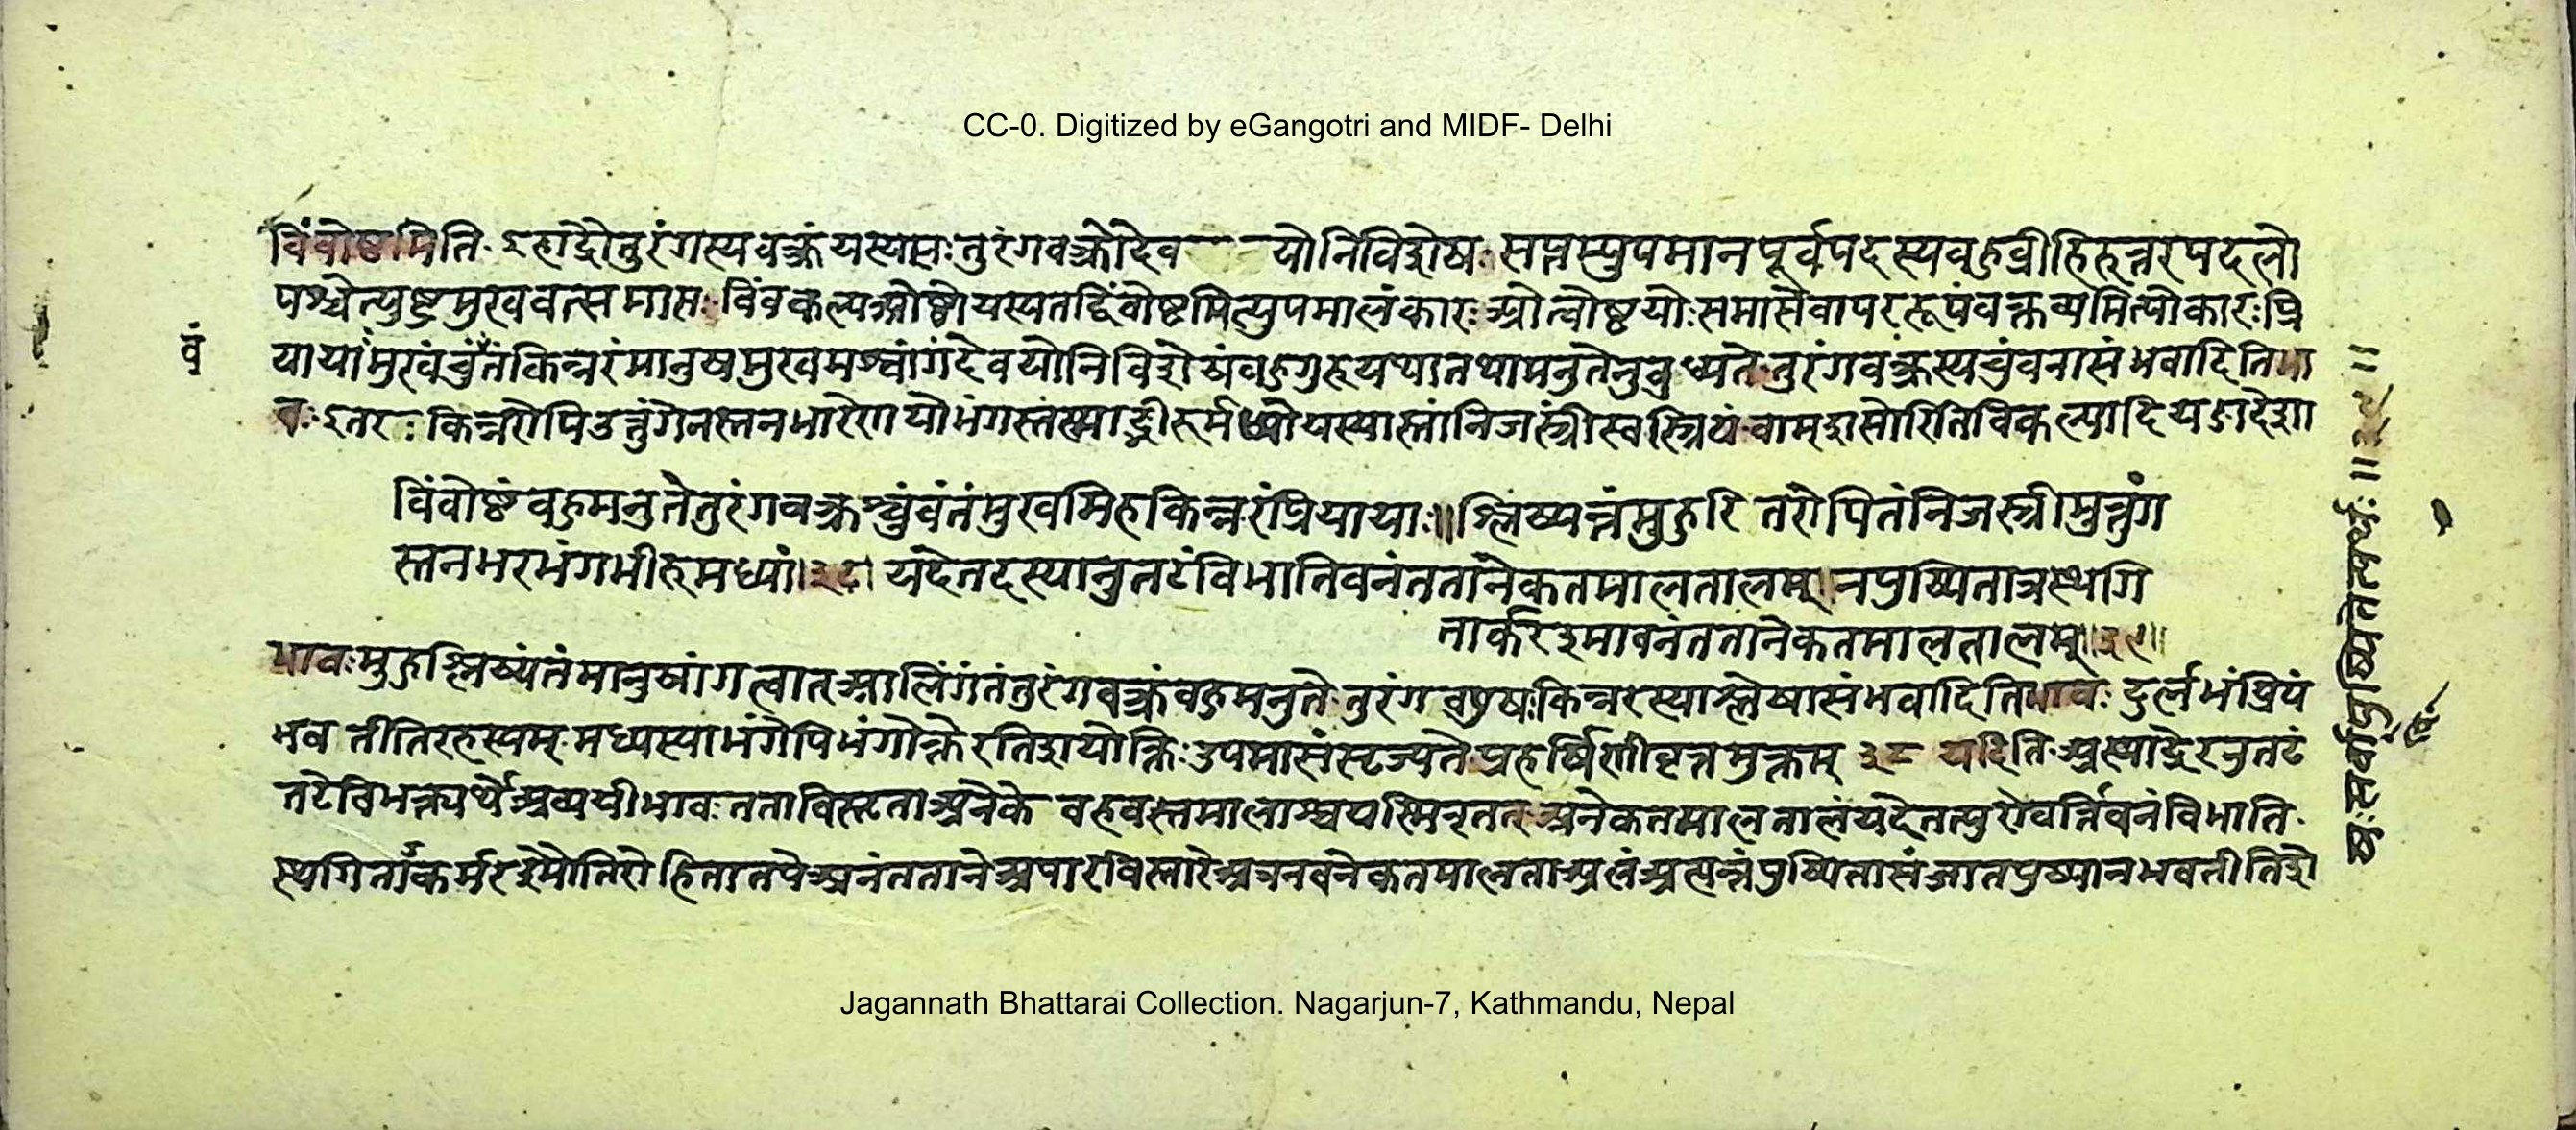 CC-0. Digitized by eGangotri and MIDF- Delhi
विंवोष्ठमिति इहाद्रौतुरंगस्यवक्त्रंयस्यसः तुरंगवक्त्रोदेव योनिविशेषः सप्तम्युपमानपूर्वपदस्यवहुव्रीहिरुत्तरपदलो
पश्चेत्युष्ट्रमुखवत्समासः विंवकल्पओष्ठोयस्यतद्विंवोष्टमित्युपमालंकारः ओत्वोष्ठयोःसमासेवापररूपंवक्तव्यमित्योकारः प्रि
यायामुखंचुंतंकिन्नरंमानुषमुखमश्वांगंदेवयोनिविशेषंवहुगुरुयथातथामनुतेनुवुध्यते तुरंगवक्त्रस्यचुंवनासंभवादितिभा
वः इतरः किन्नरोपिउत्तुंगेनस्तनभारेणयोभंगस्तंस्माद्भीरूर्मध्योयस्यास्तांनिजस्त्रींस्वस्त्रियं वाम्शसोरितिविकल्पादियङादेशा
विंवोष्ठंवहुमनुतेतुरंगवक्त्रश्चुंवंतंमुखमिहकिन्नरंप्रियायाः॥श्लिष्यन्तंमुहुरितरोपितंनिजस्त्रीमुत्तुंग
स्तनभरभंगभीरुमध्यां।३८। यदेतदस्यानुतटंविभातिवनंततानेकतमालतालम्।नपुष्पितात्रस्थगि
तार्करश्मावनंततानेकतमालतालम्॥३९॥
भावःमुहुश्लिष्यंतंमानुषांगत्वात्आलिंगंतंतुरंगवक्त्रंवहुमनुते तुरंगवपुषःकिन्नरस्याश्लेषासंभवादितिभावः दुर्लभंप्रियं
भवतीतिरहस्यम् मध्यस्याभंगेपिभंगोक्तेरतिशयोक्तिः उपमासंसृज्यते प्रहर्षिणीवृत्तमुक्तम् ३८ यदिति अस्याद्रेरनुतटं
तटेविभक्त्यर्थेअव्ययीभावः तताविस्तृताअनेके वहवस्तमालाश्च यस्मिन्तत्अनेकतमालतालंयदेतत्पुरोवर्त्तिवनंविभाति
स्थगितार्करश्मौतिरोहितातपेअनंततानेअपारविस्तारेअत्रनवनेकतमालताअलंअत्यन्तंपुष्पितासंजातपुष्पानभवतीतिशे
वं
षः सर्वापुष्पितेत्यर्थः॥३९॥
Jagannath Bhattarai Collection. Nagarjun-7, Kathmandu, Nepal